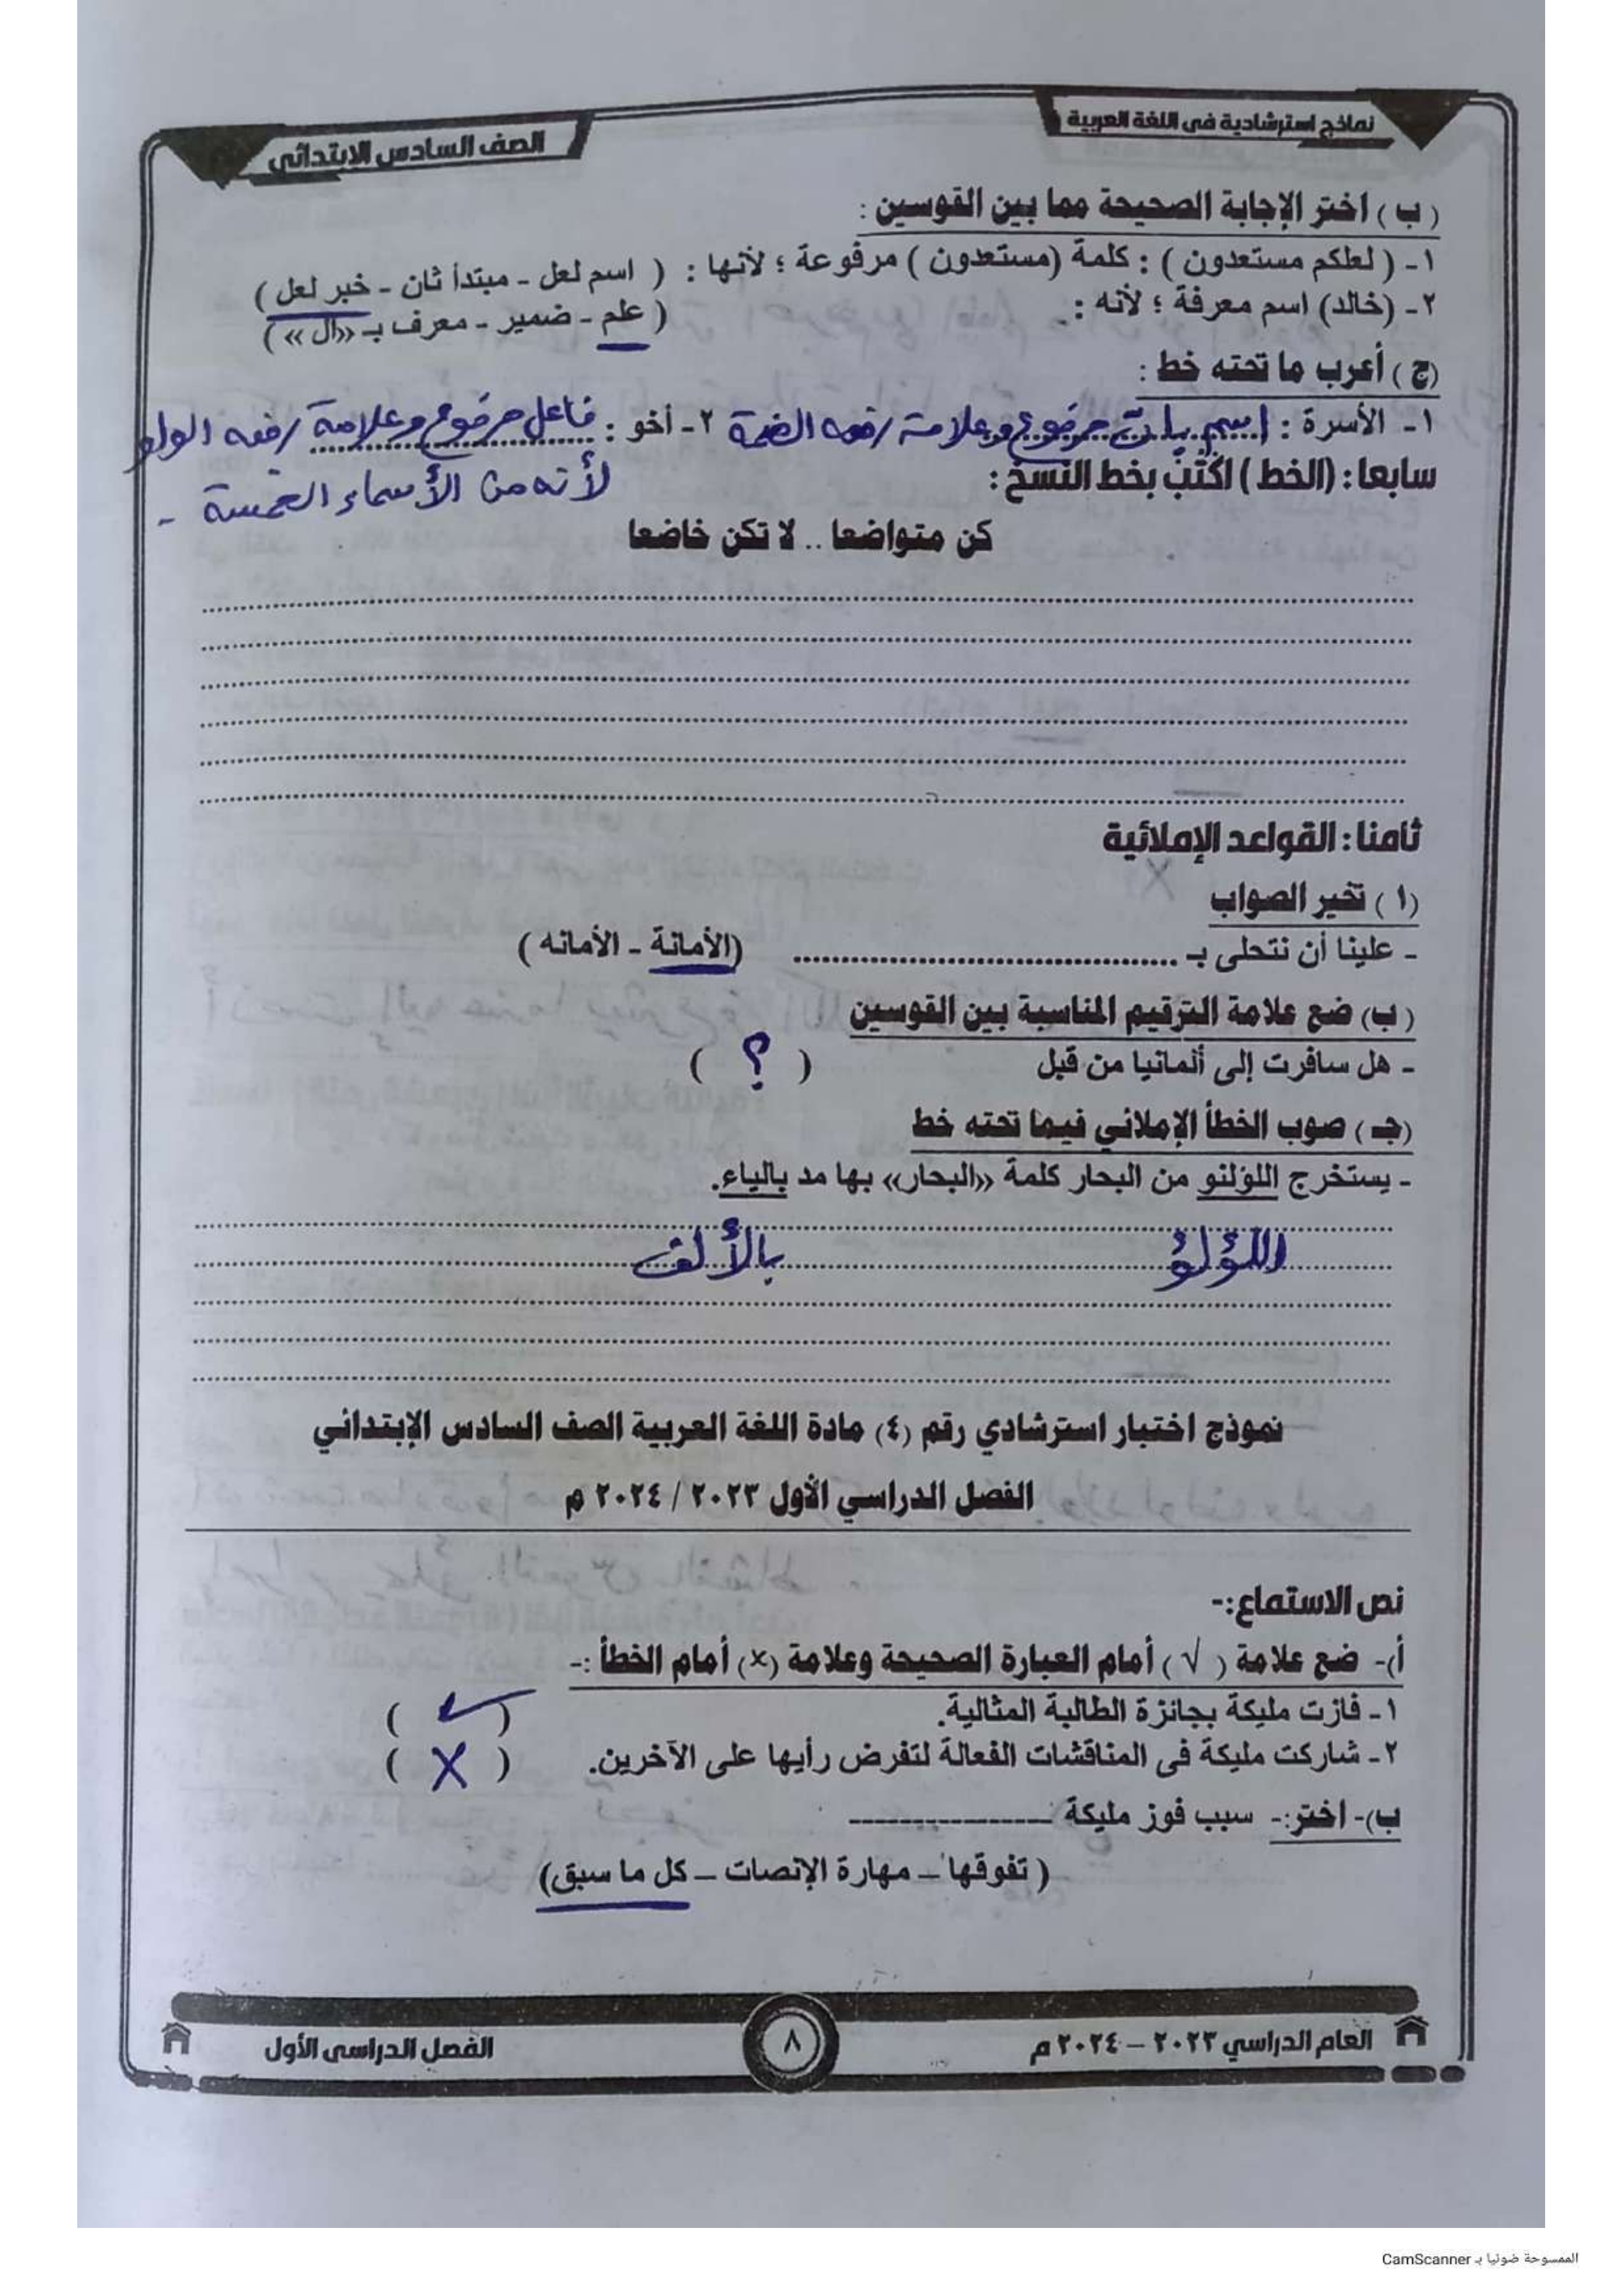 نماذج استرشادية فى اللغة العربية
الصف السادس الابتدائى
(ب) اختر الإجابة الصحيحة مما بين القوسين :
١- (لعلكم مستعدون) : كلمة (مستعدون) مرفوعة ؛ لأنها : (اسم لعل - مبتدأ ثان - خبر لعل)
٢- (خالد) اسم معرفة ؛ لأنه : (علم - ضمير - معرف بـ «ال»)
(ج) أعرب ما تحته خط :
١- الأسرة : اسم بات مرفوع وعلامة رفعه الضمة ٢- أخو : فاعل مرفوع وعلامة رفعه الواو
لأنه من الأسماء الخمسة -
سابعا: (الخط) اكتب بخط النسخ :
كن متواضعا .. لا تكن خاضعا
ثامنا: القواعد الإملائية
(١) تخير الصواب
- علينا أن نتحلى بـ ........ (الأمانة - الأمانه)
(ب) ضع علامة الترقيم المناسبة بين القوسين
- هل سافرت إلى ألمانيا من قبل ( ؟ )
(جـ) صوب الخطأ الإملائي فيما تحته خط
- يستخرج اللؤلئو من البحار كلمة «البحار» بها مد بالياء.
اللؤلؤ بالألف
نموذج اختبار استرشادي رقم (٤) مادة اللغة العربية الصف السادس الإبتدائي
الفصل الدراسي الأول ٢٠٢٣ / ٢٠٢٤ م
نص الاستماع:-
أ)- ضع علامة (√) أمام العبارة الصحيحة وعلامة (×) أمام الخطأ :-
١- فازت مليكة بجائزة الطالبة المثالية. ( ✓ )
٢- شاركت مليكة فى المناقشات الفعالة لتفرض رأيها على الآخرين. ( X )
ب)- اختر:- سبب فوز مليكة --------
(تفوقها – مهارة الإنصات – كل ما سبق)
العام الدراسي ٢٠٢٣ – ٢٠٢٤ م
٨
الفصل الدراسى الأول
الممسوحة ضوئيا بـ CamScanner